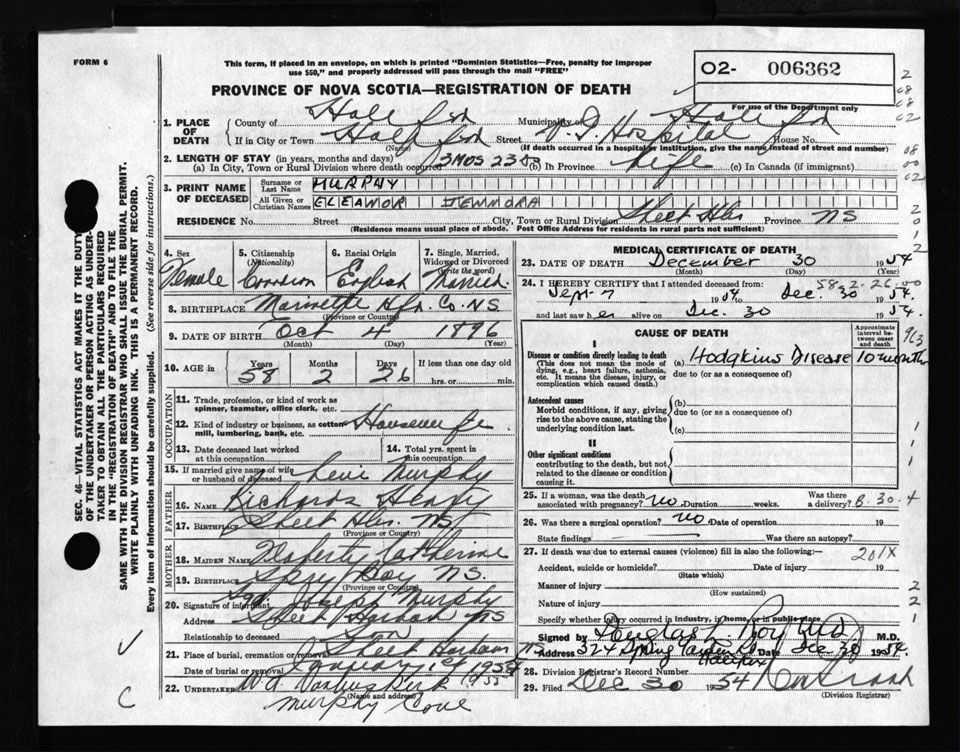 FORM 6
This form, if placed in an envelope, on which is printed "Dominion Statistics—Free, penalty for improper
use $50," and properly addressed will pass through the mail "FREE"
02- 006362
For use of the Department only
PROVINCE OF NOVA SCOTIA—REGISTRATION OF DEATH
1. PLACE OF DEATH
County of Halifax Municipality of Halifax
If in City or Town Halifax Street V.G. Hospital House No.
(Name) (If death occurred in a hospital or institution, give the name instead of street and number)
2. LENGTH OF STAY (in years, months and days)
(a) In City, Town or Rural Division where death occurred 3 MOS 23 DS (b) In Province Life (c) In Canada (if immigrant)
3. PRINT NAME OF DECEASED
Surname or Last Name MURPHY
All Given or Christian Names ELEANOR JEMMORA
RESIDENCE No. Street City, Town or Rural Division Sheet Hbr Province NS
(Residence means usual place of abode. Post Office Address for residents in rural parts not sufficient)
4. Sex Female
5. Citizenship (Nationality) Canadian
6. Racial Origin English
7. Single, Married, Widowed or Divorced (write the word) Married
8. BIRTHPLACE Marinette Hfx. Co. N.S.
(Province or Country)
9. DATE OF BIRTH Oct 4 1896
(Month) (Day) (Year)
10. AGE in Years 58 Months 2 Days 26 If less than one day old
hrs. or min.
OCCUPATION
11. Trade, profession, or kind of work as
spinner, teamster, office clerk, etc.
12. Kind of industry or business, as cotton-
mill, lumbering, bank, etc. Housewife
13. Date deceased last worked
at this occupation
14. Total yrs. spent in
this occupation
15. If married give name of wife
or husband of deceased Levi Murphy
FATHER
16. Name Richards Henry
17. Birthplace Sheet Hbr. NS
(Province or Country)
MOTHER
18. MAIDEN NAME Doherty Catherine
19. Birthplace Spry Bay NS.
(Province or Country)
20. Signature of informant Sgd. Joseph Murphy
Address Sheet Harbour NS
Relationship to deceased Son
21. Place of burial, cremation or removal Sheet Harbour NS
Date of burial or removal January 1st 1955
22. UNDERTAKER
(Name and address)
Murphy Cove
MEDICAL CERTIFICATE OF DEATH
23. DATE OF DEATH December 30 1954
(Month) (Day) (Year)
58-2-26-00
24. I HEREBY CERTIFY that I attended deceased from:
Sept-7 1954 to Dec. 30 1954.
and last saw h er alive on Dec. 30 1954.
CAUSE OF DEATH
Approximate interval between onset and death
I
Disease or condition directly leading to death
(This does not mean the mode of dying, e.g., heart failure, asthenia, etc. It means the disease, injury, or complication which caused death.)
(a) Hodgkins Disease 10 months
due to (or as a consequence of)
Antecedent causes
Morbid conditions, if any, giving rise to the above cause, stating the underlying condition last.
(b)
due to (or as a consequence of)
(c)
II
Other significant conditions
contributing to the death, but not related to the disease or condition causing it.
25. If a woman, was the death
associated with pregnancy? No Duration weeks. Was there a delivery? B.30.4
26. Was there a surgical operation? No Date of operation 19
State findings Was there an autopsy?
27. If death was due to external causes (violence) fill in also the following:— 201X
Accident, suicide or homicide? Date of injury 19
(State which)
Manner of injury
(How sustained)
Nature of injury
Specify whether injury occurred in industry, in home, or in public place
Signed by Douglas L. Roy MD M.D.
Address 324 Spring Garden Rd Date Dec 30 1954.
Halifax
28. Division Registrar's Record Number
29. Filed Dec 30 1954
(Division Registrar)
SEC. 46—VITAL STATISTICS ACT MAKES IT THE DUTY
OF THE UNDERTAKER OR PERSON ACTING AS UNDER-
TAKER TO OBTAIN ALL THE PARTICULARS REQUIRED
IN THE "REGISTRATION OF DEATH" AND TO FILE THE
SAME WITH THE DIVISION REGISTRAR WHO SHALL ISSUE THE BURIAL PERMIT.
WRITE PLAINLY WITH UNFADING INK. THIS IS A PERMANENT RECORD.
Every item of information should be carefully supplied. (See reverse side for instructions.)
C